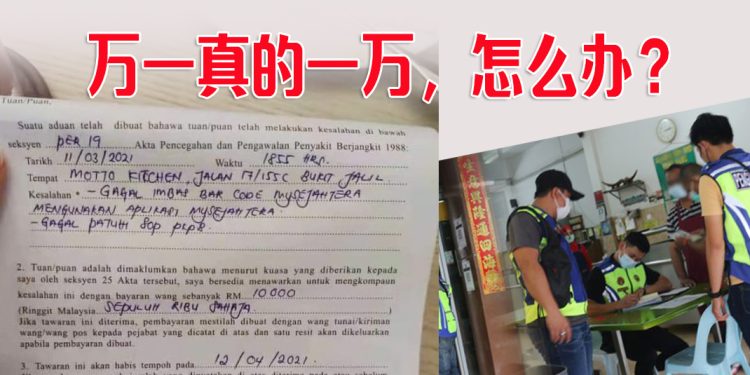 万一真的一万，怎么办？
Tuan/Puan,
Suatu aduan telah dibuat bahawa tuan/puan telah melakukan kesalahan di bawah
seksyen PER 19 Akta Pencegahan dan Pengawalan Penyakit Berjangkit 1988:
Tarikh 11/03/2021 Waktu 1855 HRS.
Tempat MOTTO KITCHEN, JALAN 17/155C BUKIT JALIL
Kesalahan * - GAGAL IMBAS BAR CODE MYSEJAHTERA
MENGUNAKAN APLIKASI MYSEJAHTERA.
- GAGAL PATUHI SOP PKPB.
2. Tuan/puan adalah dimaklumkan bahawa menurut kuasa yang diberikan kepada
saya oleh seksyen 25 Akta tersebut, saya bersedia menawarkan untuk mengkompaun
kesalahan ini dengan bayaran wang sebanyak RM 10,000
(Ringgit Malaysia SEPULUH RIBU SAHAJA )
Jika tawaran ini diterima, pembayaran mestilah dibuat dengan wang tunai/kiriman
wang/wang pos kepada pejabat yang dicatat di atas dan satu resit akan dikeluarkan
apabila pembayaran dibuat.
3. Tawaran ini akan habis tempoh pada 12/04/2021.
旺兴隆通四海